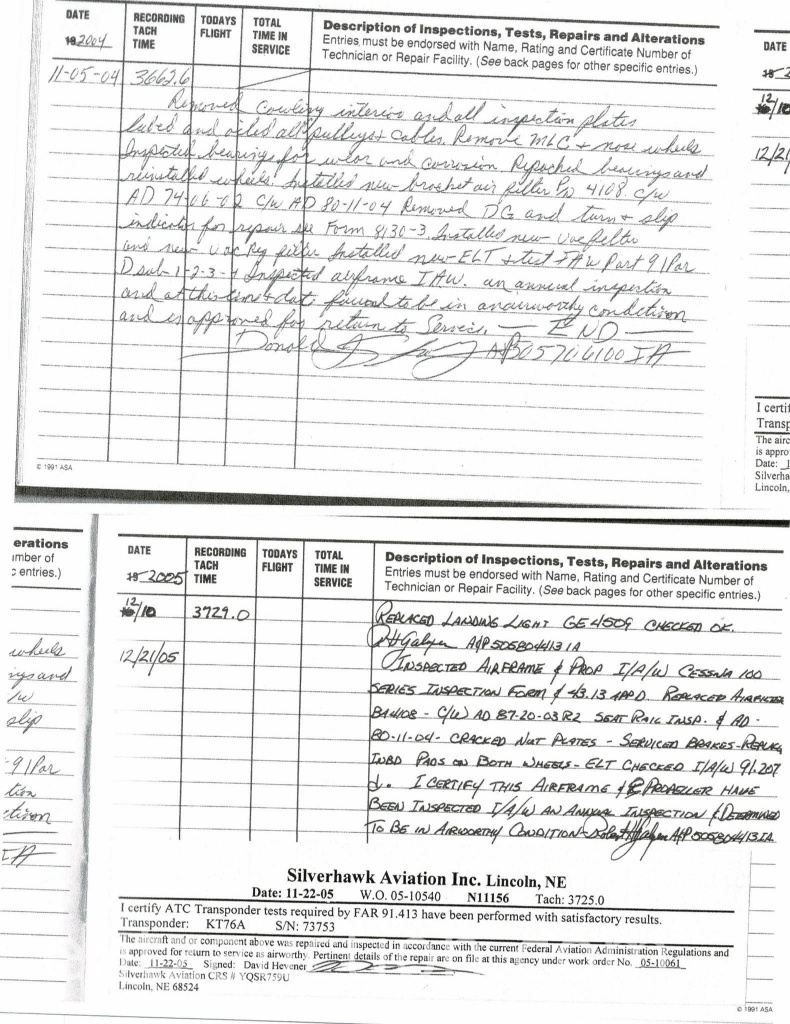 DATE
RECORDING TACH TIME
TODAYS FLIGHT
TOTAL TIME IN SERVICE
Description of Inspections, Tests, Repairs and Alterations
Entries must be endorsed with Name, Rating and Certificate Number of
Technician or Repair Facility. (See back pages for other specific entries.)
19 2004
11-05-04 3662.6
Removed cowling interior and all inspection plates
lubed and oiled all pulleys + cables. Remove MLG + nose wheels
Inspected bearings for wear and corrosion Repacked bearings and
reinstalled wheels. Installed new bracket air filter PN 4108. c/w
AD 74-06-02 C/W AD 80-11-04 Removed DG and turn + slip
indicator for repair see Form 8130-3. Installed new vac filter
and new vac Reg filter Installed new ELT + test IAW Part 91 Par
D sub-1-2-3-4 Inspected airframe IAW. an annual inspection
and at this time + date found to be in an airworthy condition
and is approved for return to Service. — END —
Donald A&P 305706100 IA
© 1991 ASA
DATE
12/10
12/21
I certif
Transp
The airc
is appro
Date: 1
Silverha
Lincoln,
erations
umber of
c entries.)
wheels
ngs and
/w
slip
91 Par
tion
dition
IA
DATE
RECORDING TACH TIME
TODAYS FLIGHT
TOTAL TIME IN SERVICE
Description of Inspections, Tests, Repairs and Alterations
Entries must be endorsed with Name, Rating and Certificate Number of
Technician or Repair Facility. (See back pages for other specific entries.)
19 2005
12/10 3729.0 REPLACED LANDING LIGHT GE 4509 CHECKED OK.
A&P 505804413 IA
12/21/05 INSPECTED AIRFRAME & PROP I/A/W CESSNA 100
SERIES INSPECTION FORM & 43.13 APP D. REPLACED AIRFILTER
BA4108 - C/W AD 87-20-03 R2 SEAT RAIL INSP. & AD -
80-11-04 - CRACKED NUT PLATES - SERVICED BRAKES - REPLACE
INBD PADS ON BOTH WHEELS - ELT CHECKED I/A/W 91.207
d. I CERTIFY THIS AIRFRAME & PROPELLER HAVE
BEEN INSPECTED I/A/W AN ANNUAL INSPECTION & DETERMINED
TO BE IN AIRWORTHY CONDITION - A&P 505804413 IA
Silverhawk Aviation Inc. Lincoln, NE
Date: 11-22-05 W.O. 05-10540 N11156 Tach: 3725.0
I certify ATC Transponder tests required by FAR 91.413 have been performed with satisfactory results.
Transponder: KT76A S/N: 73753
The aircraft and or component above was repaired and inspected in accordance with the current Federal Aviation Administration Regulations and
is approved for return to service as airworthy. Pertinent details of the repair are on file at this agency under work order No. 05-10061
Date: 11-22-05 Signed: David Hevener
Silverhawk Aviation CRS # YQSR759U
Lincoln, NE 68524
© 1991 ASA